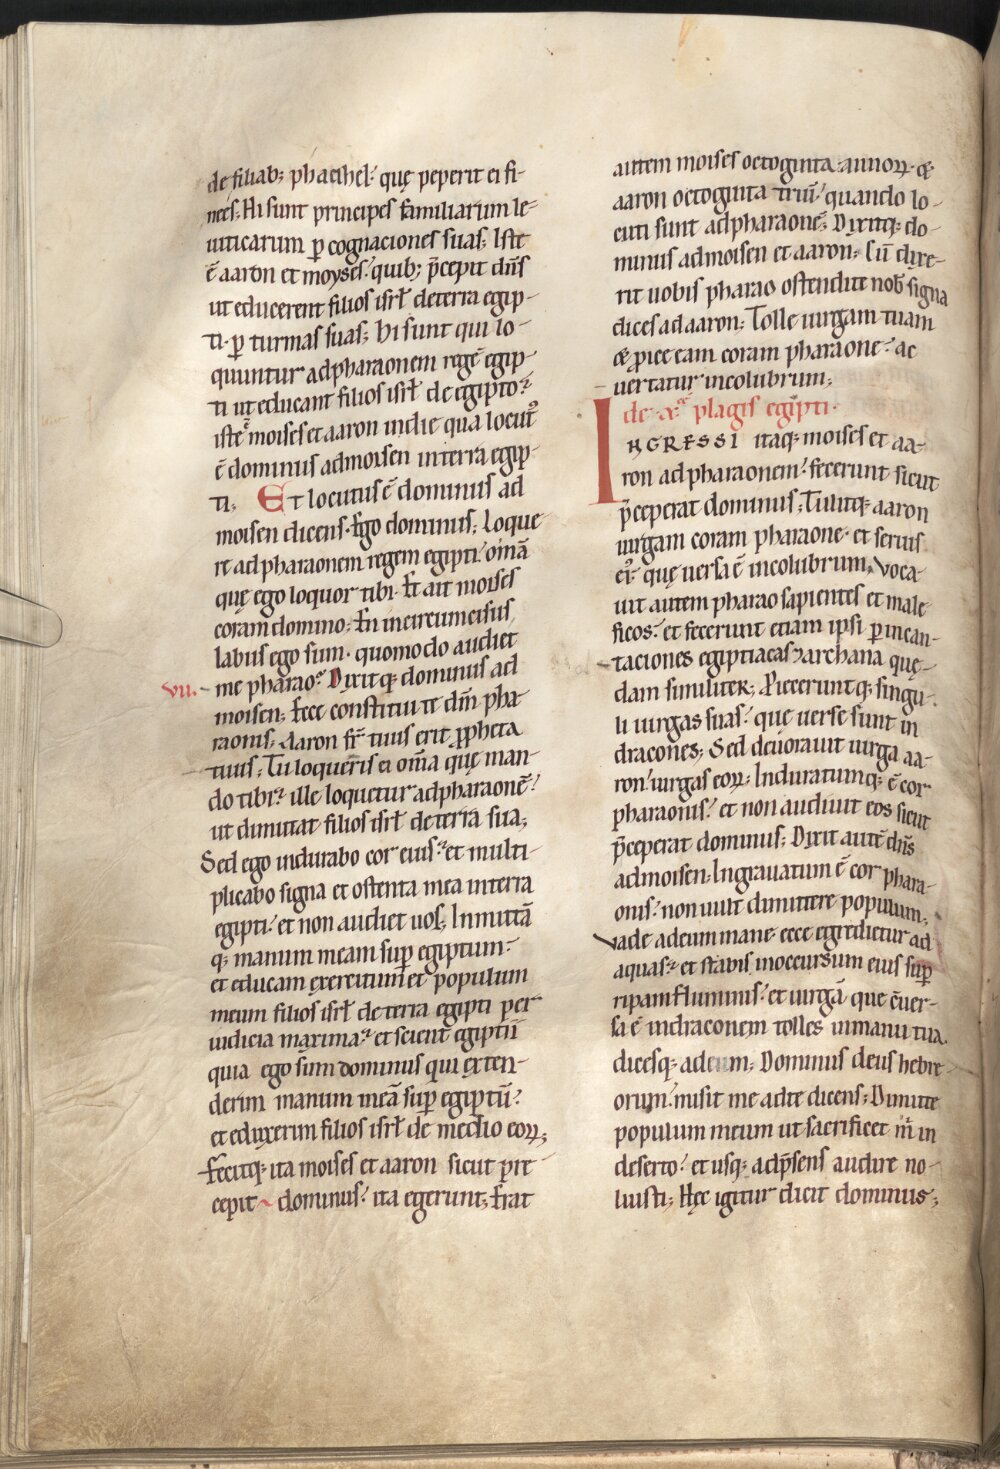 de filiab; phatihel· quę peperit ei fi-
nees; Hi sunt principes familiarum le-
uiticarum p̱ cognaciones suas; Iste
ē aaron et moyses· quib; p̄cepit dn̄s
ut educerent filios isrł de terra egip-
ti· p̱ turmas suas; hi sunt qui lo-
quuntur ad pharaonem regē egip-
ti ut educant filios isrł de egipto·
iste moises et aaron in die qua locut᷒
ē dominus ad moisen in terra egip-
ti; Et locutus ē dominus ad
moisen dicens· Ego dominus; loque
re ad pharaonem regem egipti· om̄ā
quę ego loquor tibi· Et ait moises
coram domino; En incircumcisus
labiis ego sum· quomodo audiet
vii. me pharao· Dixitq; dominus ad
moisen; Ecce constitui te dm̄ pha-
raonis; Aaron fr̄ tuus erit p̱pheta
tuus; Tu loqueris ei om̄a quę man-
do tibi· ille loquetur ad pharaonē·
ut dimittat filios isrł de terra sua;
Sed ego indurabo cor eius· et multi-
plicabo signa et ostenta mea in terra
egipti· et non audiet uos; Inmittā
q; manum meam sup̱ egiptum·
et educam exercitum et populum
meum filios isrł de terra egipti per
iudicia maxima· et scient egiptii
quia ego sum dominus qui exten-
derim manum meā sup̱ egiptū·
et eduxerim filios isrł de medio eoꝝ;
Fecitq; ita moises et aaron sicut pre
cepit dominus· ita egerunt; Erat
autem moises octoginta annoꝝ· &
aaron octoginta triū· quando lo-
cuti sunt ad pharaonē; Dixitq; do-
minus ad moisen et aaron; Cū dixe-
rit uobis pharao ostendite nob̄ signa
dices ad aaron; Tolle uirgam tuam
& proice eam coram pharaone· ac
uertatur in colubrum;
de x. plagis egipti·
INGRESSI itaq; moises et aa-
ron ad pharaonem· fecerunt sicut
p̄ceperat dominus; Tulitq; aaron
uirgam coram pharaone· et seruis
ei᷒· quę uersa ē in colubrum; Voca-
uit autem pharao sapientes et male-
ficos· et fecerunt etiam ipsi p̱ incan-
taciones egiptiacas ⁊ archana quę-
dam similiter; Proieceruntq; singu-
li uirgas suas· quę uerse sunt in
dracones; Sed deuorauit uirga aa-
ron uirgas eoꝝ; Induratumq; ē cor
pharaonis· et non audiuit eos sicut
p̄ceperat dominus; Dixit autē dn̄s
ad moisen; Ingrauatum ē cor phara-
onis· non uult dimittere populum;
Vade ad eum mane ecce egredietur ad
aquas· et stabis in occursum eius sup̱
ripam fluminis· et uirgā que cūer-
sa ē in draconem tolles in manu tua
dicesq; ad eum; Dominus deus hebre-
orum· misit me ad te dicens; Dimitte
populum meum ut sacrificet m̄ in
deserto· et usq; ad p̄sens audire no-
luisti; Hęc igitur dicit dominus;